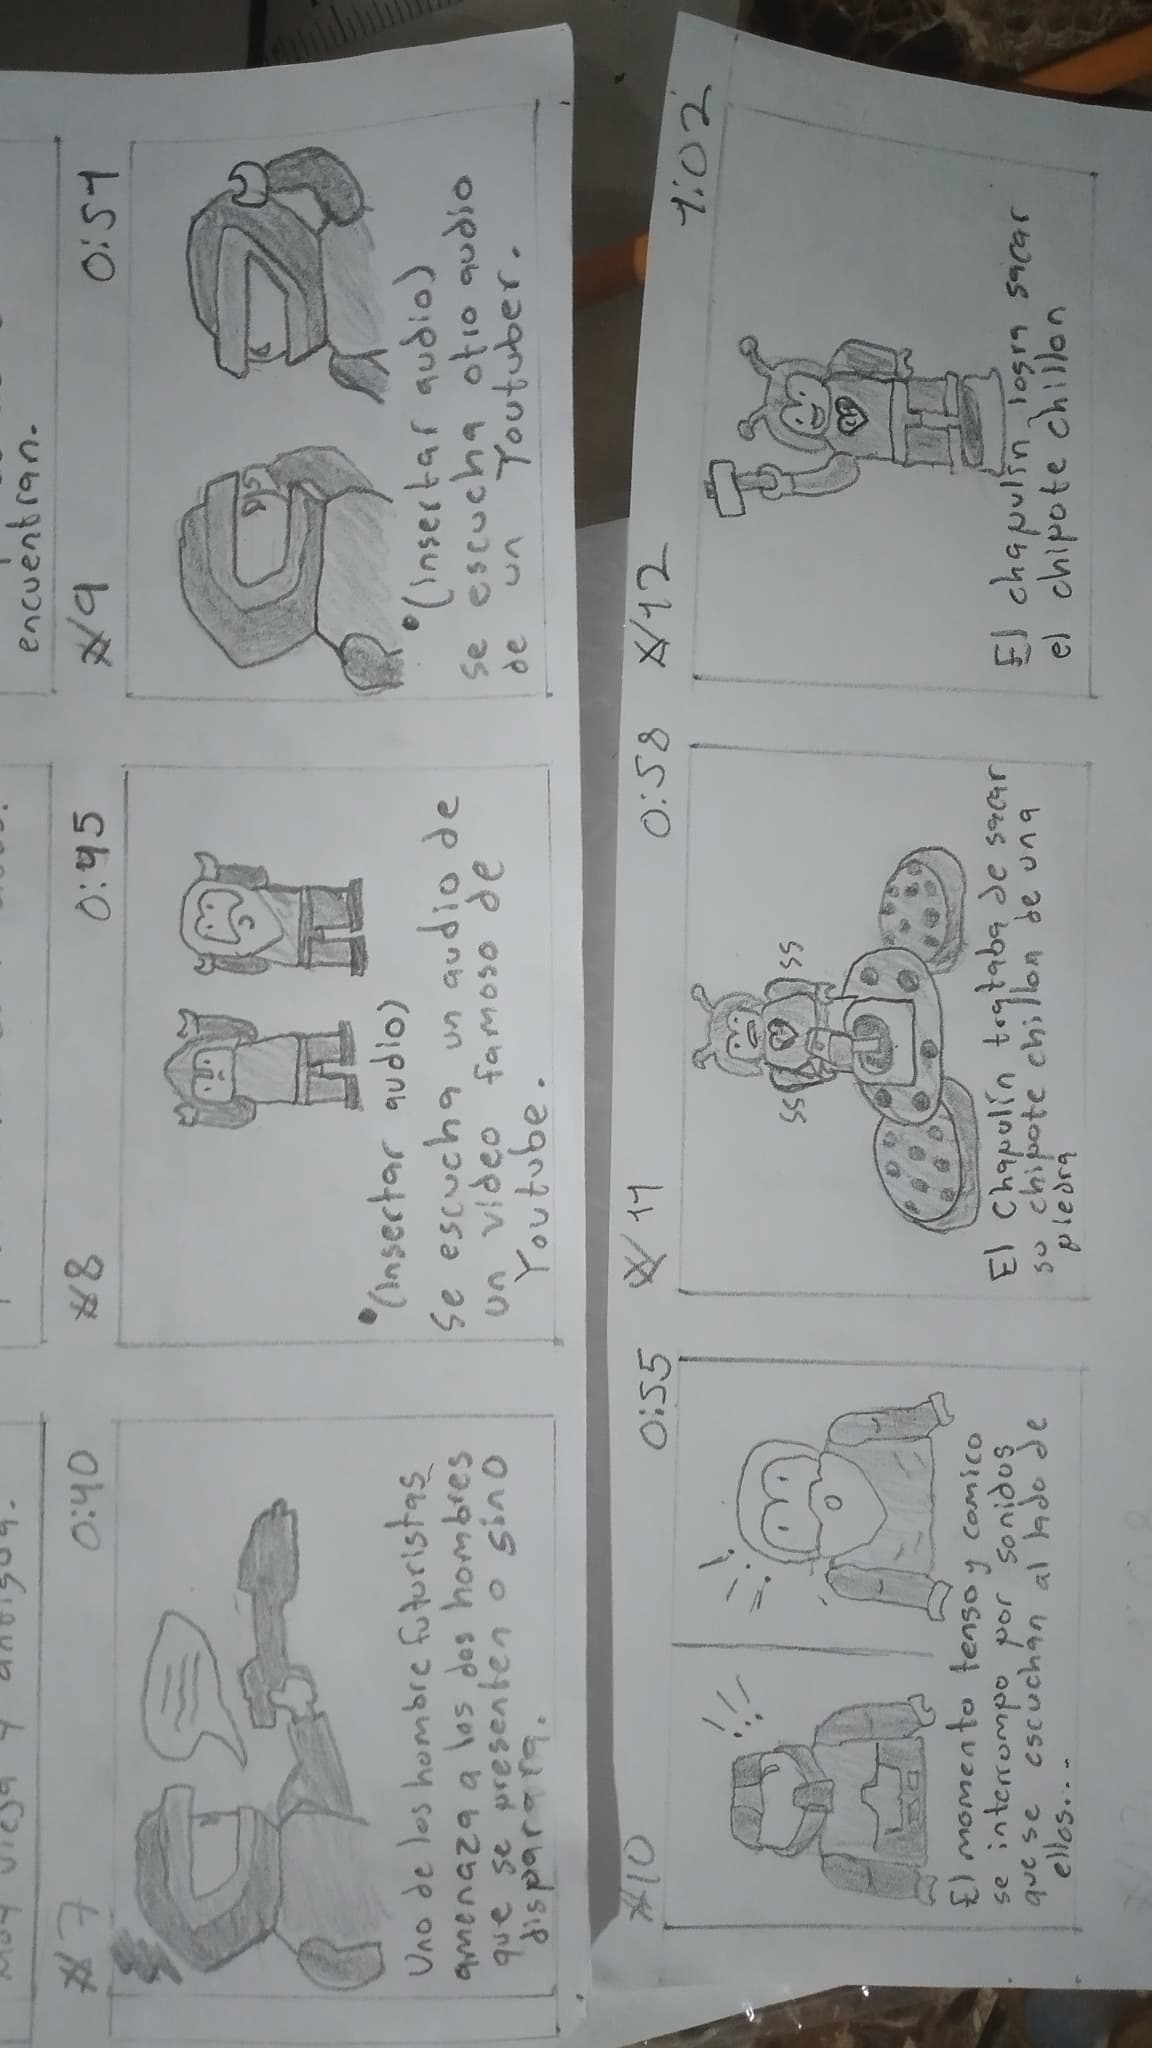 encuentran.
#7 0:40
Uno de los hombre futuristas
amenaza a los dos hombres
que se presenten o sino
disparara.
#8 0:45
•(insertar audio)
Se escucha un audio de
un video famoso de
Youtube.
#9 0:51
•(insertar audio)
se escucha otro audio
de un Youtuber.
#10 0:55
El momento tenso y comico
se interrumpo por sonidos
que se escuchan al lado de
ellos...
#11 0:58
SS SS
El Chapulín trataba de sacar
su chipote chillon de una
piedra
#12 1:02
CH
El chapulín logra sacar
el chipote chillon